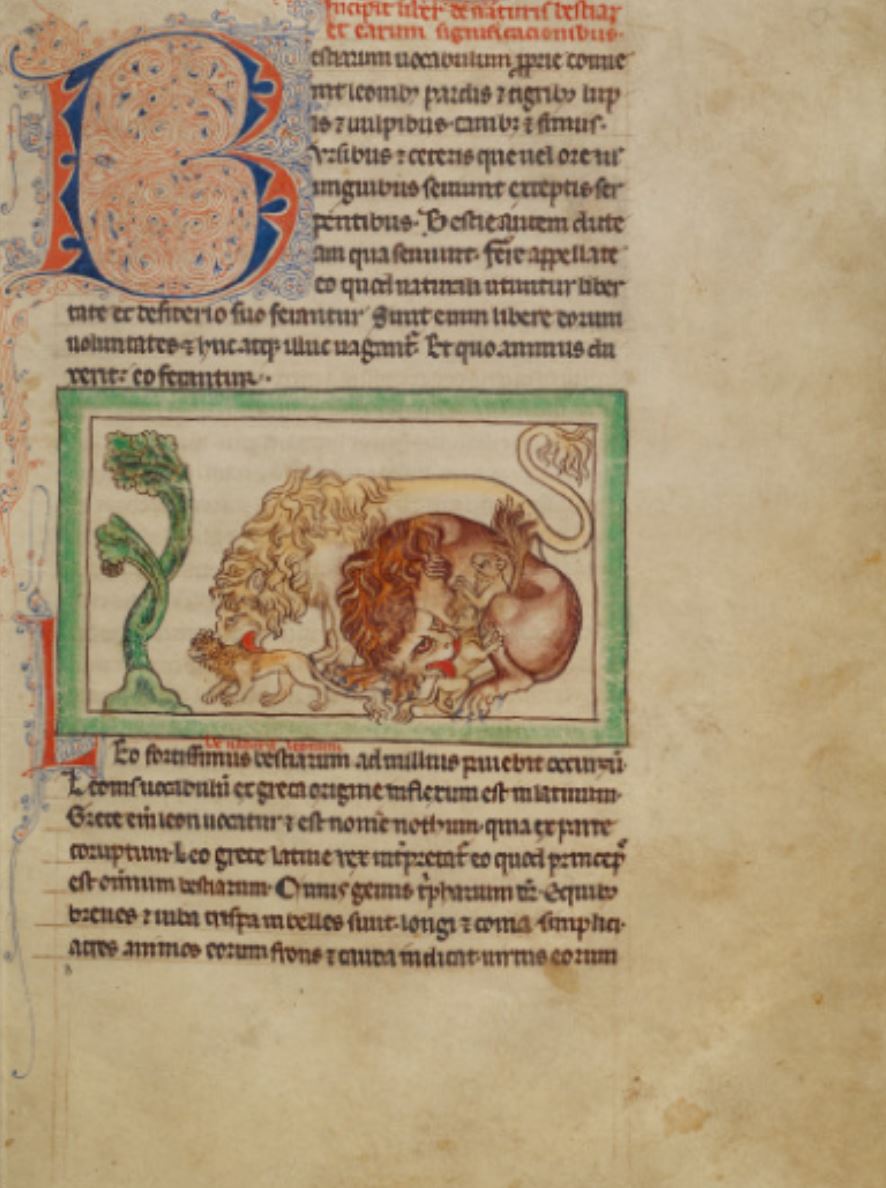 Incipit liber de naturis bestiar
et earum significacionibus.
Bestiarum uocabulum proprie conue
nit leonibus pardis ⁊ tigribus lup
is ⁊ uulpibus canibus ⁊ simiis.
Vrsibus ⁊ ceteris que uel ore uel
unguibus seuiunt exceptis ser
pentibus. Bestie autem dicte
a ui qua seuiunt. fere appellate
eo quod naturali utuntur liber
tate et desiderio suo ferantur. Sunt enim libere eorum
uoluntates ⁊ huc atque illuc uagantur. Et quo animus du
xerit: eo feruntur.
De natura leonum
Leo fortissimus bestiarum ad nullius pauebit occursum.
Leonis uocabulum ex greca origine inflexum est in latinum.
Grece enim leon uocatur ⁊ est nomen nothum quia ex parte
corruptum. Leo grece latine rex interpretatur eo quod princeps
est omnium bestiarum. Cuius genus tripharium dicitur. E quibus
breues ⁊ iuba crispa inbelles sunt. longi ⁊ coma simplici
acres animos eorum frons ⁊ cauda indicat. uirtus eorum